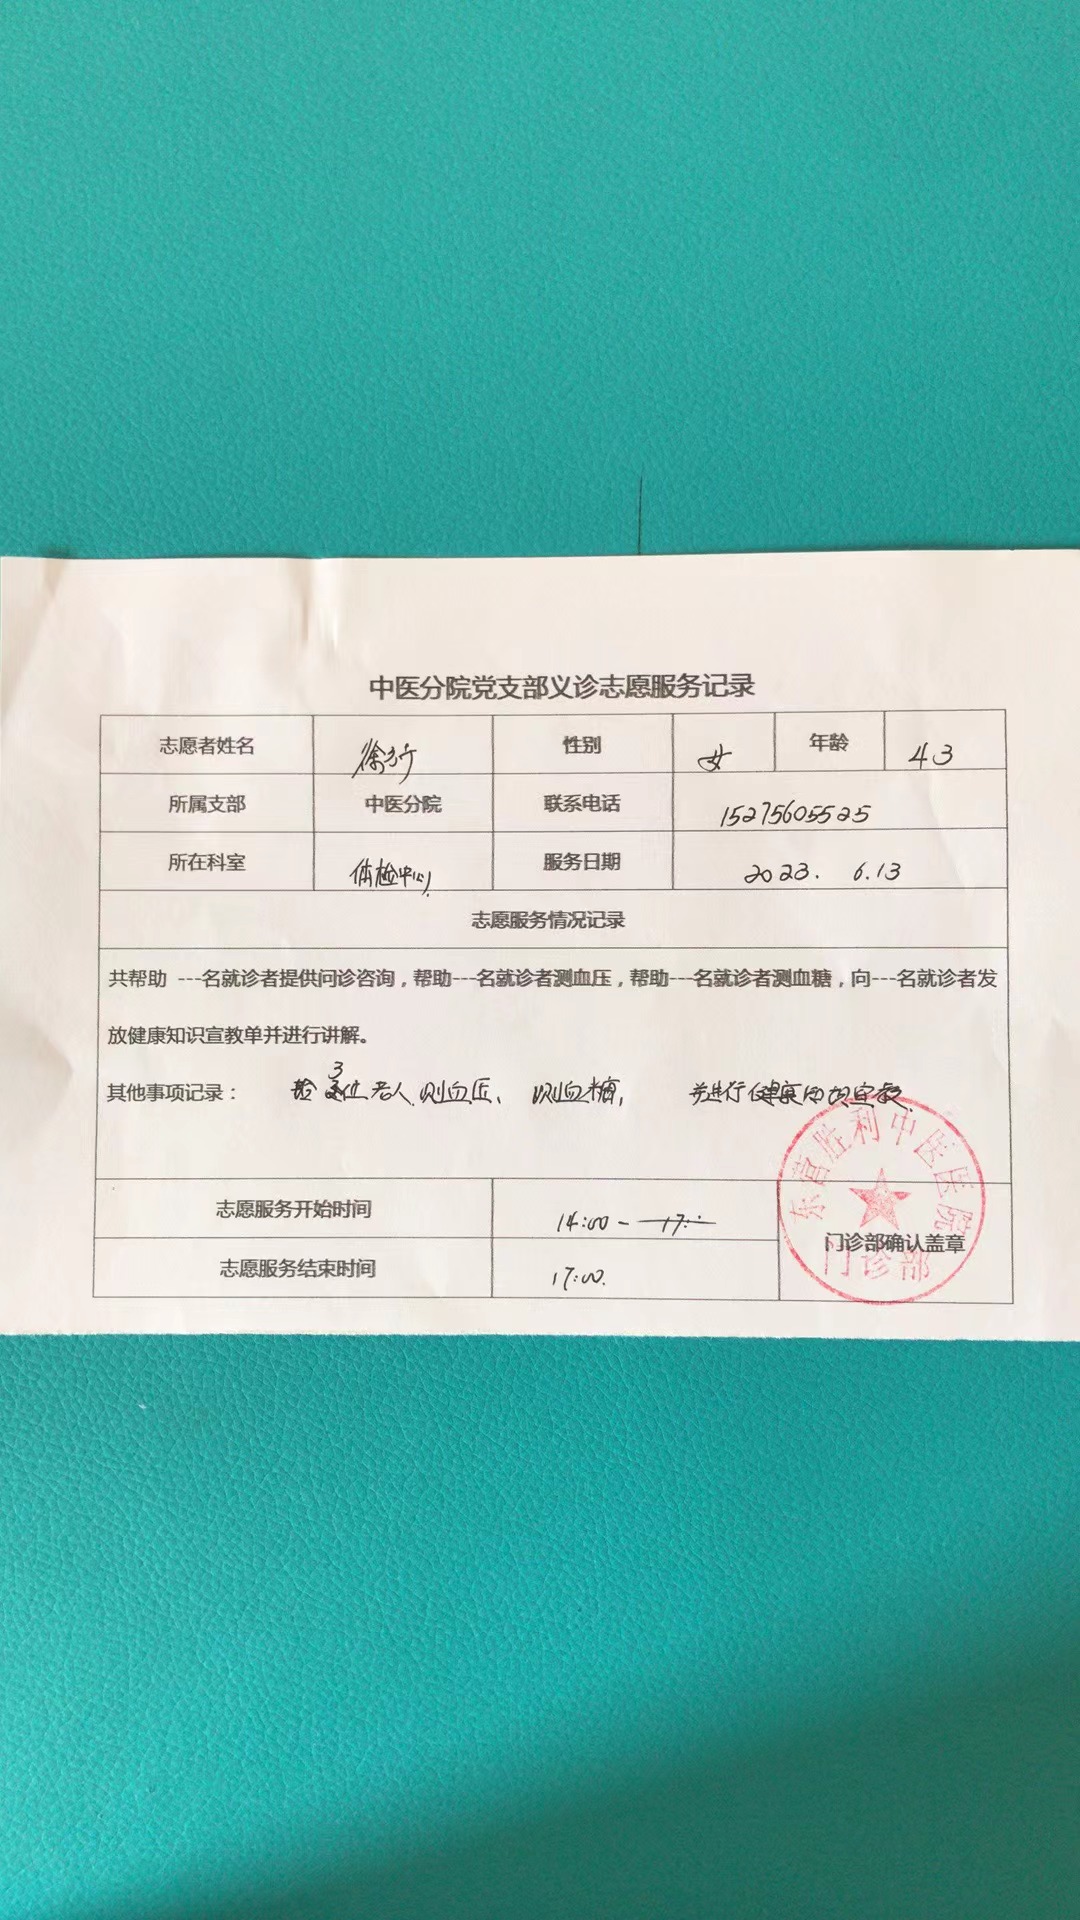 中医分院党支部义诊志愿服务记录
志愿者姓名 徐 性别 女 年龄 43
所属支部 中医分院 联系电话 15275605525
所在科室 体检中心 服务日期 2023. 6.13
志愿服务情况记录
共帮助 ---名就诊者提供问诊咨询，帮助---名就诊者测血压，帮助---名就诊者测血糖，向---名就诊者发
放健康知识宣教单并进行讲解。
其他事项记录： 给3位老人测血压、测血糖, 并进行健康知识宣教.
志愿服务开始时间 14:00 -
志愿服务结束时间 17:00.
门诊部确认盖章
东营胜利中医医院
门诊部